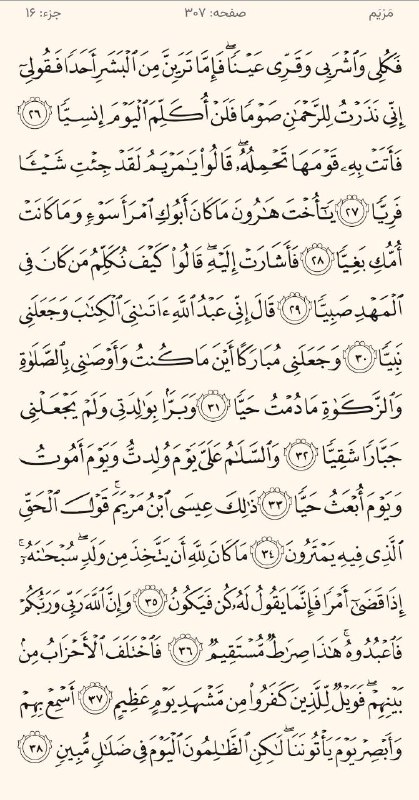 مَریَم صفحه: ۳۰۷ جزء: ۱۶
فَكُلِي وَٱشْرَبِي وَقَرِّي عَيْنًاۖ فَإِمَّا تَرَيِنَّ مِنَ ٱلْبَشَرِ أَحَدًا فَقُولِيٓ
إِنِّي نَذَرْتُ لِلرَّحْمَٰنِ صَوْمًا فَلَنْ أُكَلِّمَ ٱلْيَوْمَ إِنسِيًّا ٢٦
فَأَتَتْ بِهِۦ قَوْمَهَا تَحْمِلُهُۥۖ قَالُوا۟ يَٰمَرْيَمُ لَقَدْ جِئْتِ شَيْـًٔا
فَرِيًّا ٢٧ يَٰٓأُخْتَ هَٰرُونَ مَا كَانَ أَبُوكِ ٱمْرَأَ سَوْءٍ وَمَا كَانَتْ
أُمُّكِ بَغِيًّا ٢٨ فَأَشَارَتْ إِلَيْهِۖ قَالُوا۟ كَيْفَ نُكَلِّمُ مَن كَانَ فِي
ٱلْمَهْدِ صَبِيًّا ٢٩ قَالَ إِنِّي عَبْدُ ٱللَّهِ ءَاتَىٰنِيَ ٱلْكِتَٰبَ وَجَعَلَنِي
نَبِيًّا ٣٠ وَجَعَلَنِي مُبَارَكًا أَيْنَ مَا كُنتُ وَأَوْصَٰنِي بِٱلصَّلَوٰةِ
وَٱلزَّكَوٰةِ مَا دُمْتُ حَيًّا ٣١ وَبَرًّۢا بِوَٰلِدَتِي وَلَمْ يَجْعَلْنِي
جَبَّارًا شَقِيًّا ٣٢ وَٱلسَّلَٰمُ عَلَيَّ يَوْمَ وُلِدتُّ وَيَوْمَ أَمُوتُ
وَيَوْمَ أُبْعَثُ حَيًّا ٣٣ ذَٰلِكَ عِيسَى ٱبْنُ مَرْيَمَۚ قَوْلَ ٱلْحَقِّ
ٱلَّذِي فِيهِ يَمْتَرُونَ ٣٤ مَا كَانَ لِلَّهِ أَن يَتَّخِذَ مِن وَلَدٍۖ سُبْحَٰنَهُۥٓۚ
إِذَا قَضَىٰٓ أَمْرًا فَإِنَّمَا يَقُولُ لَهُۥ كُن فَيَكُونُ ٣٥ وَإِنَّ ٱللَّهَ رَبِّي وَرَبُّكُمْ
فَٱعْبُدُوهُۚ هَٰذَا صِرَٰطٌ مُّسْتَقِيمٌ ٣٦ فَٱخْتَلَفَ ٱلْأَحْزَابُ مِنۢ
بَيْنِهِمْۖ فَوَيْلٌ لِّلَّذِينَ كَفَرُوا۟ مِن مَّشْهَدِ يَوْمٍ عَظِيمٍ ٣٧ أَسْمِعْ بِهِمْ
وَأَبْصِرْ يَوْمَ يَأْتُونَنَاۖ لَٰكِنِ ٱلظَّٰلِمُونَ ٱلْيَوْمَ فِي ضَلَٰلٍ مُّبِينٍ ٣٨